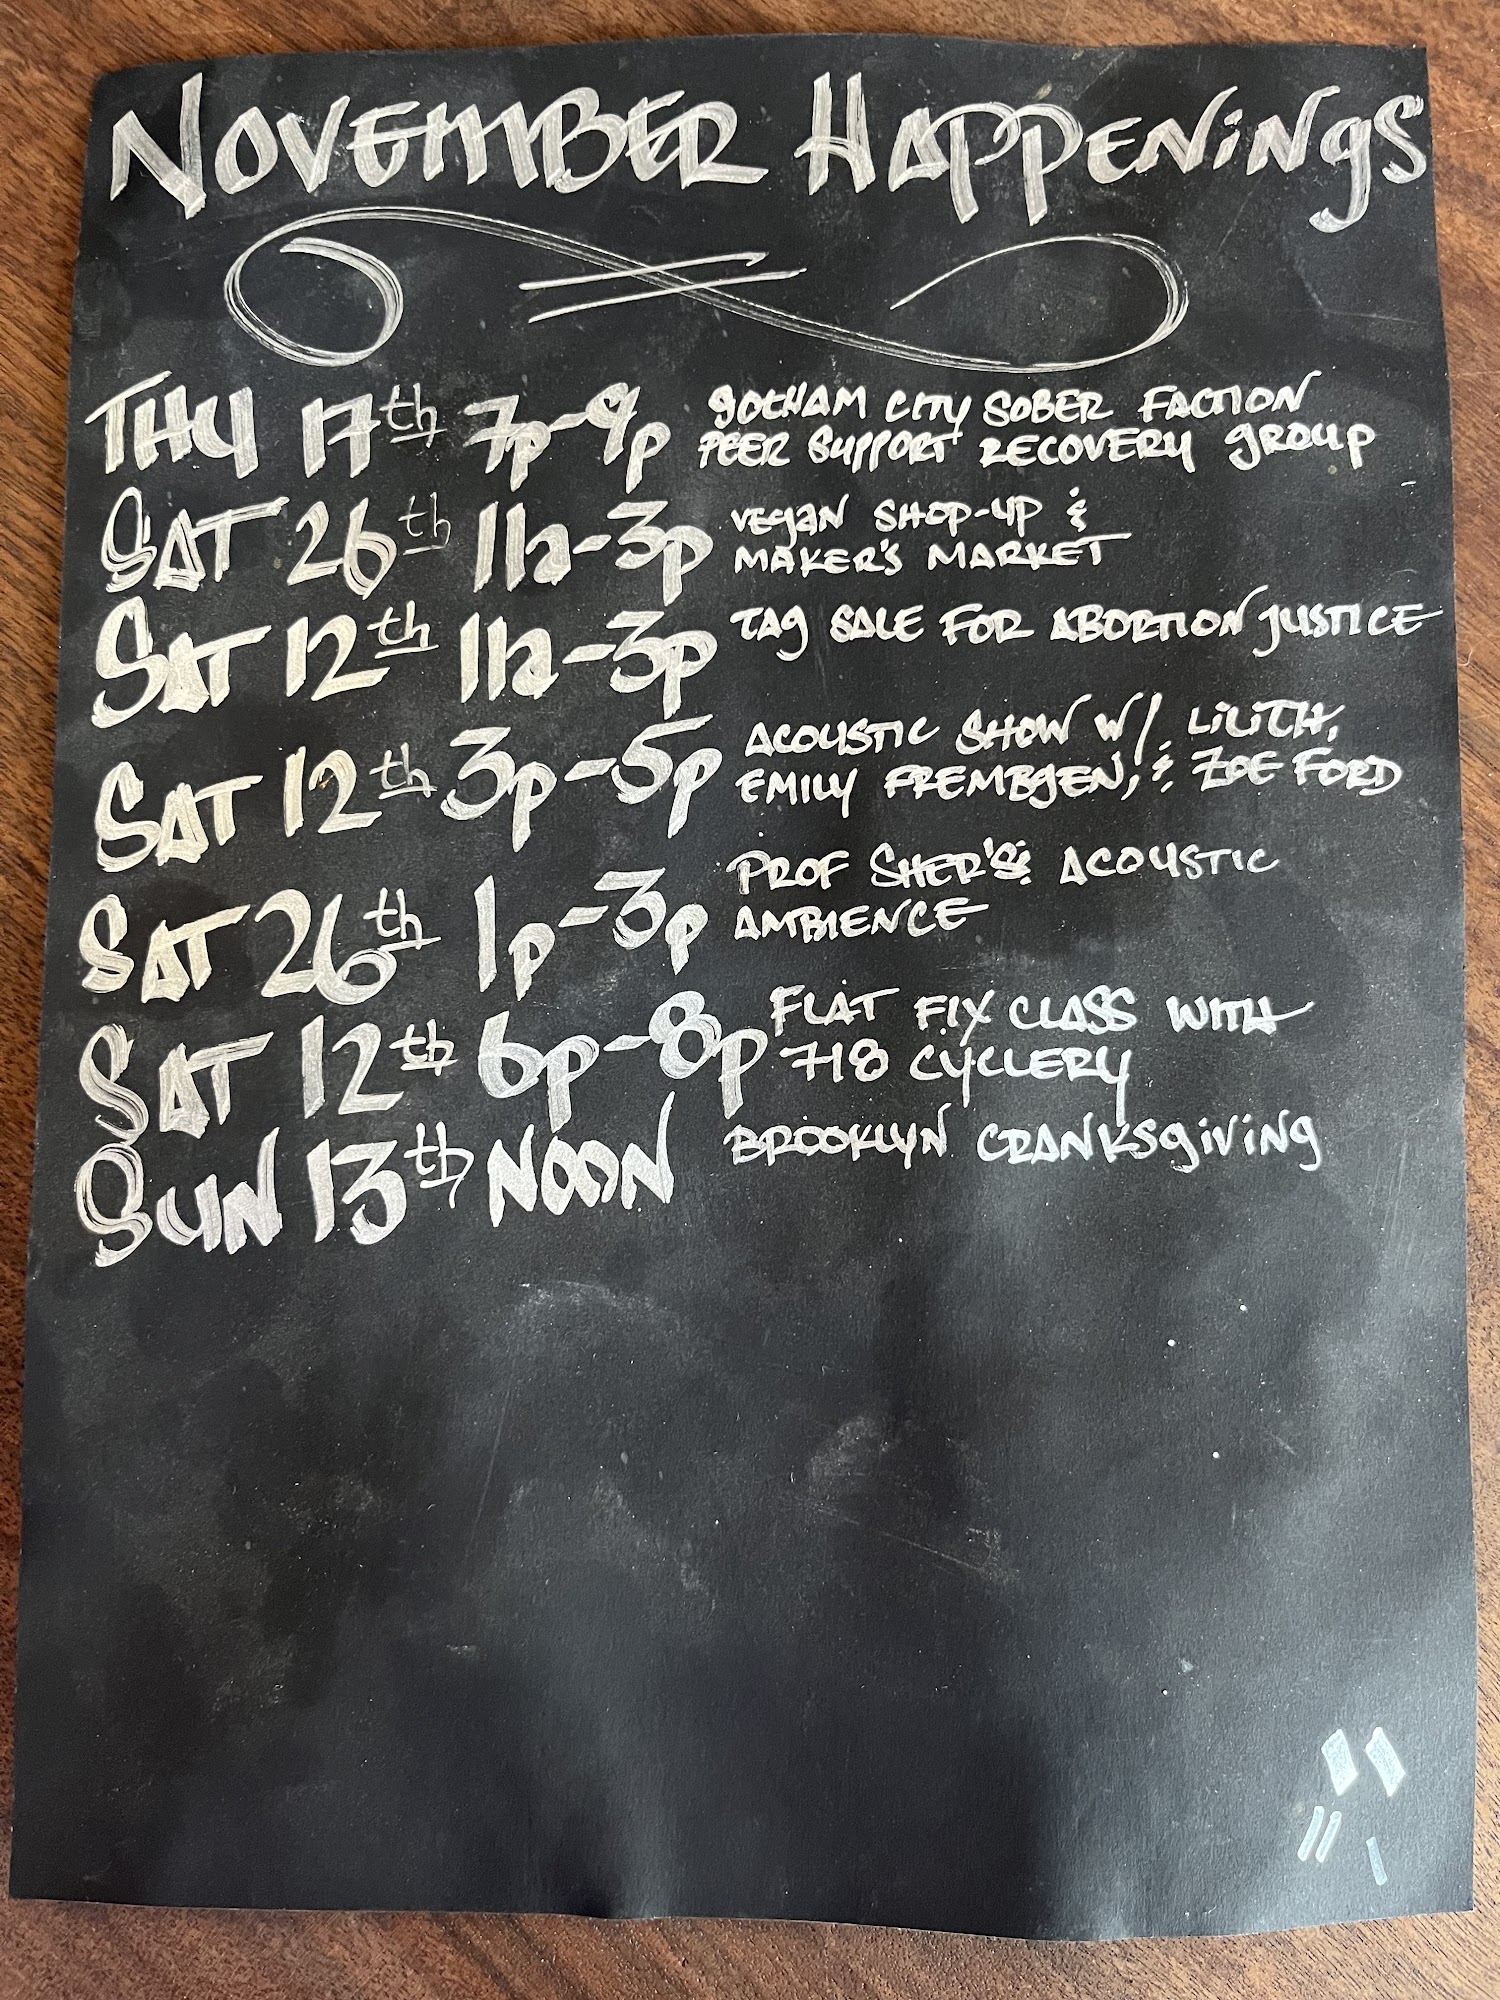 November Happenings
THU 17th 7p-9p Gotham City Sober Faction
Peer Support Recovery Group
SAT 26th 11a-3p Vegan Shop-Up &
Maker's Market
SAT 12th 11a-3p Tag Sale for Abortion Justice
SAT 12th 3p-5p Acoustic Show w/ Lilith,
Emily Frembgen, & Zoe Ford
SAT 26th 1p-3p Prof Sher's Acoustic
Ambience
SAT 12th 6p-8p Flat Fix Class with
718 Cyclery
SUN 13th NOON Brooklyn Cranksgiving